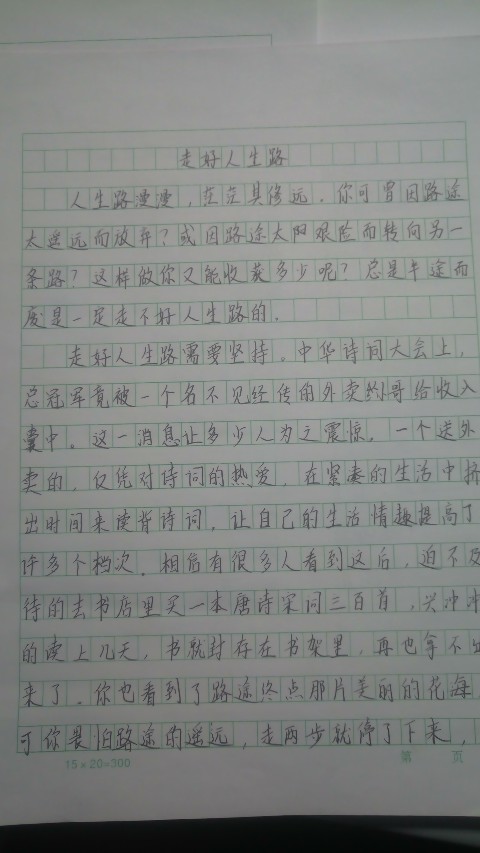 走好人生路
人生路漫漫，在在其修远。你可曾因路途
太遥远而放弃？或因路途太阳艰险而转向另一
条路？这样做你又能收获多少呢？总是半途而
废是一定走不好人生路的。
走好人生路需要坚持。中华诗词大会上，
总冠军竟被一个名不见经传的外卖小哥给收入
囊中。这一消息让多少人为之震惊。一个送外
卖的，仅凭对诗词的热爱，在紧凑的生活中挤
出时间来读背诗词，让自己的生活情趣提高了
许多个档次。相信有很多人看到这后，迫不及
待的去书店里买一本唐诗宋词三百首，兴冲冲
的读上几天，书就封存在书架里，再也拿不出
来了。你也看到了路途终点那片美丽的花海，
可你畏惧路途的遥远，走两步就停了下来，
15×20=300 第 页